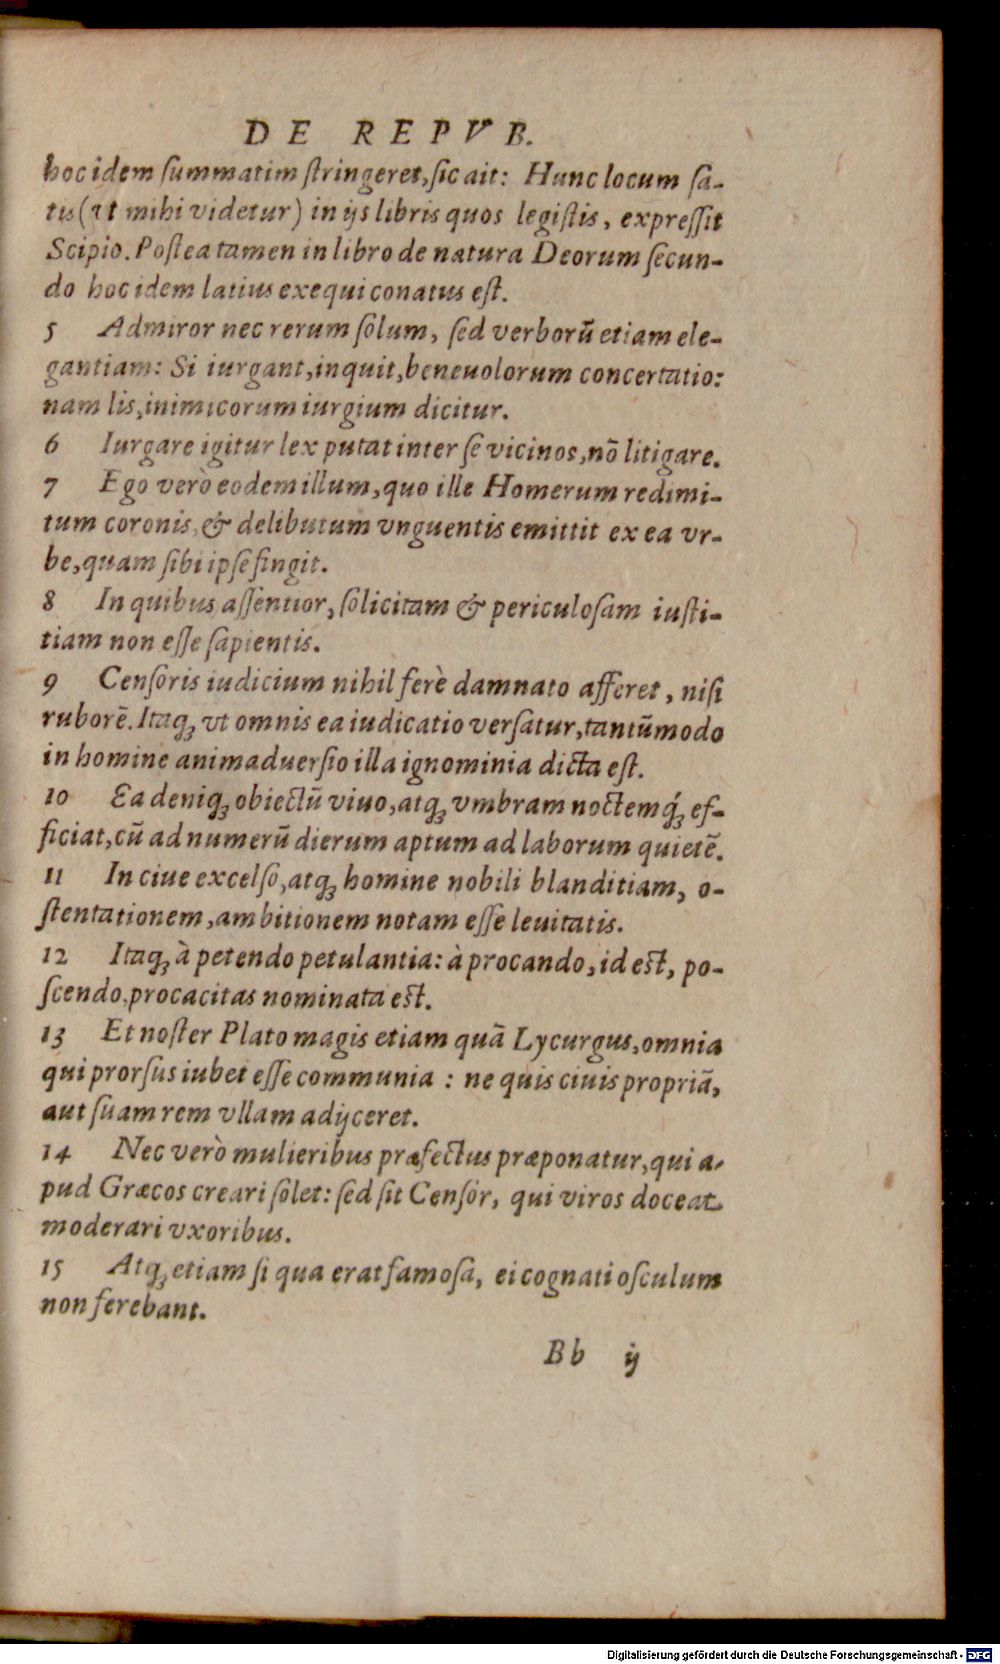 DE REPVB.
hoc idem ſummatim ſtringeret, ſic ait: Hunc locum ſa-
tis (vt mihi videtur) in ijs libris quos legiſtis, expreſſit
Scipio. Poſtea tamen in libro de natura Deorum ſecun-
do hoc idem latius exequi conatus eſt.
5 Admiror nec rerum ſolum, ſed verborũ etiam ele-
gantiam: Si iurgant, inquit, beneuolorum concertatio:
nam lis, inimicorum iurgium dicitur.
6 Iurgare igitur lex putat inter ſe vicinos, nõ litigare.
7 Ego verò eodem illum, quo ille Homerum redimi-
tum coronis, & delibutum vnguentis emittit ex ea vr-
be, quam ſibi ipſe fingit.
8 In quibus aſſentior, ſolicitam & periculoſam iuſti-
tiam non eſſe ſapientis.
9 Cenſoris iudicium nihil ferè damnato afferet, niſi
ruborẽ. Itaqꝫ vt omnis ea iudicatio verſatur, tantũmodo
in homine animaduerſio illa ignominia dicta eſt.
10 Ea deniqꝫ obiectũ viuo, atqꝫ vmbram noctemq́ꝫ ef-
ficiat, cũ ad numerũ dierum aptum ad laborum quietẽ.
11 In ciue excelſo, atqꝫ homine nobili blanditiam, o-
ſtentationem, ambitionem notam eſſe leuitatis.
12 Itaqꝫ à petendo petulantia: à procando, id est, po-
ſcendo, procacitas nominata est.
13 Et noſter Plato magis etiam quã Lycurgus, omnia
qui prorſus iubet eſſe communia : ne quis ciuis propriã,
aut ſuam rem vllam adijceret.
14 Nec verò mulieribus præfectus præponatur, qui a-
pud Græcos creari ſolet: ſed ſit Cenſor, qui viros doceat
moderari vxoribus.
15 Atqꝫ etiam ſi qua erat famoſa, ei cognati oſculum
non ferebant.
Bb ij
Digitalisierung gefördert durch die Deutsche Forschungsgemeinschaft - DFG